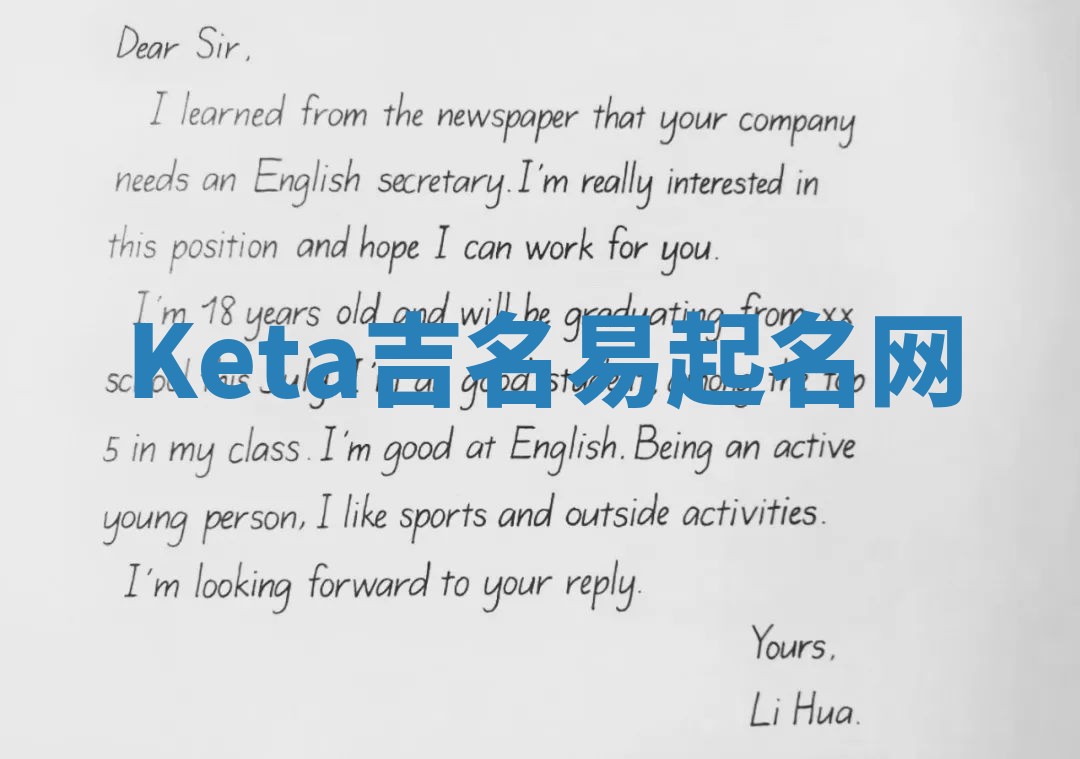 Dear Sir,
I learned from the newspaper that your company
needs an English secretary. I'm really interested in
this position and hope I can work for you.
I'm 18 years old and will be graduating from xx
Keta吉名易起名网
school this July. I'm a good student, among the top
5 in my class. I'm good at English. Being an active
young person, I like sports and outside activities.
I'm looking forward to your reply.
Yours,
Li Hua.